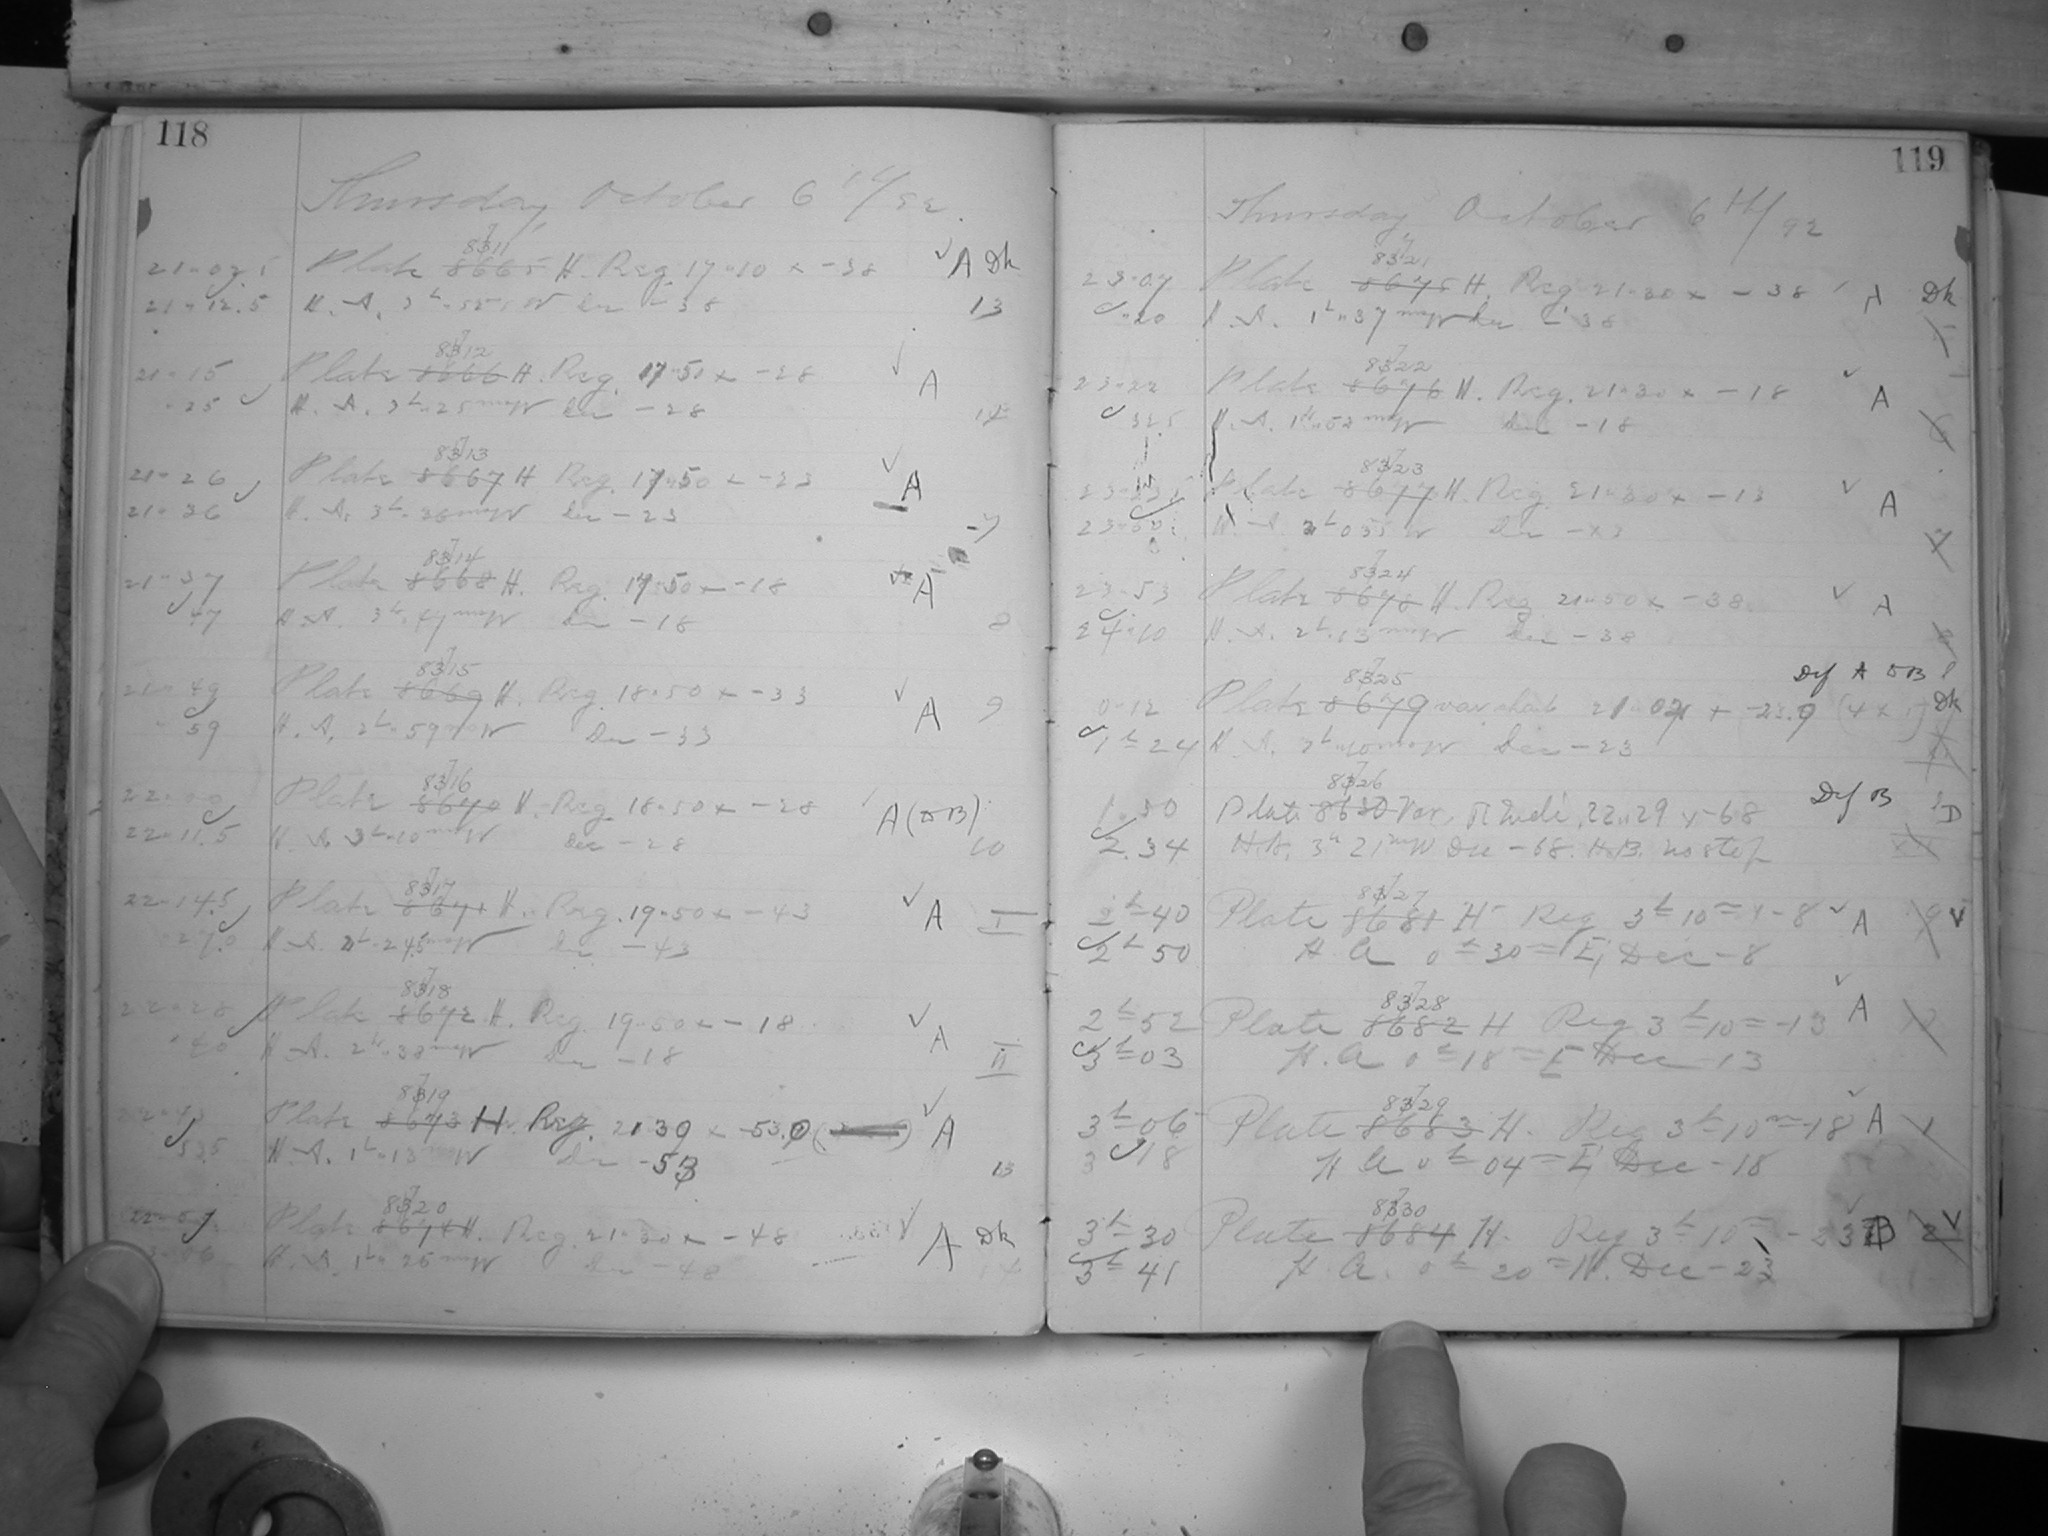 118
Thursday October 6th/92.
8311
21 12.5 Plate 8665 H. Reg 17 10 x -38 A Dk
H. A. Dec -38 13
8312
21 15 Plate 8666 H. Reg. 17 50 x -28 A
25 H. A. 3h 25m W Dec -28
8313
21 26 Plate 8667 H Reg. 17 50 x -23 A
21 36 H. A. 3h 36m W Dec -23 7
8314
21 37 Plate 8668 H. Reg. 17 50 x -18 A
47 H. A. 3h 47m W Dec -18 8
8315
21 49 Plate 8669 H. Reg. 18 50 x -33 A 9
59 H. A. 2h 59m W Dec -33
8316
22 00 Plate 8670 H. Reg. 18 50 x -28 A (B)
22 11.5 H. A. 3h 10m W Dec -28 10
8317
22 14.5 Plate 8671 H. Reg. 19 50 x -43 A I
27.0 H. A. Dec -43
8318
22 28 Plate 8672 H. Reg. 19 50 x -18 A
40 H. A. 2h 38m W Dec -18 II
8319
Plate 8673 H. Reg. 21 30 x -53.0 A
52.5 H. A. 1h 13m W Dec -53 13
8320
22 57 Plate 8674 H. Reg. 21 30 x -48 A Dk
H. A. 1h 26m W Dec -48 14
119
Thursday October 6th/92
8321
23 07 Plate 8675 H. Reg 21 30 x -38 A Dk
20 H. A. 1h 37m W Dec -38
8322
23 22 Plate 8676 H. Reg. 21 30 x -18 A
32.5 H. A. 1h 52m W Dec -18 6
8323
Plate 8677 H. Reg 21 30 x -13 A
H. A. Dec 7
8324
23 53 Plate 8678 H. Reg 21 50 x -38 A
24 10 H. A. 2h 13m W Dec -38 8
8325 Def A
0 12 Plate 8679 21 04 x -23.9 Dk
1h 24 H. A. Dec -23
8326
1.30 Plate 8680 Var. 22 29 x -68 Def B D
2.34 H.A. 3h 21m W Dec -68. H.B. no step
8327
2h 40 Plate 8681 H Reg 3h 10m x -8 A 9 v
2h 50 H. A 0h 30m E, Dec -8
8328
2h 52 Plate 8682 H Reg 3h 10m -13 A
3h 03 H. A 0h 18m E Dec -13
8329
3h 06 Plate 8683 H. Reg 3h 10m -18 A 1
3 18 H A 0h 04m E, Dec -18
8330
3h 30 Plate 8684 H. Reg 3h 10m -23 B 2 v
3h 41 H. A. 0h 20m W. Dec -23